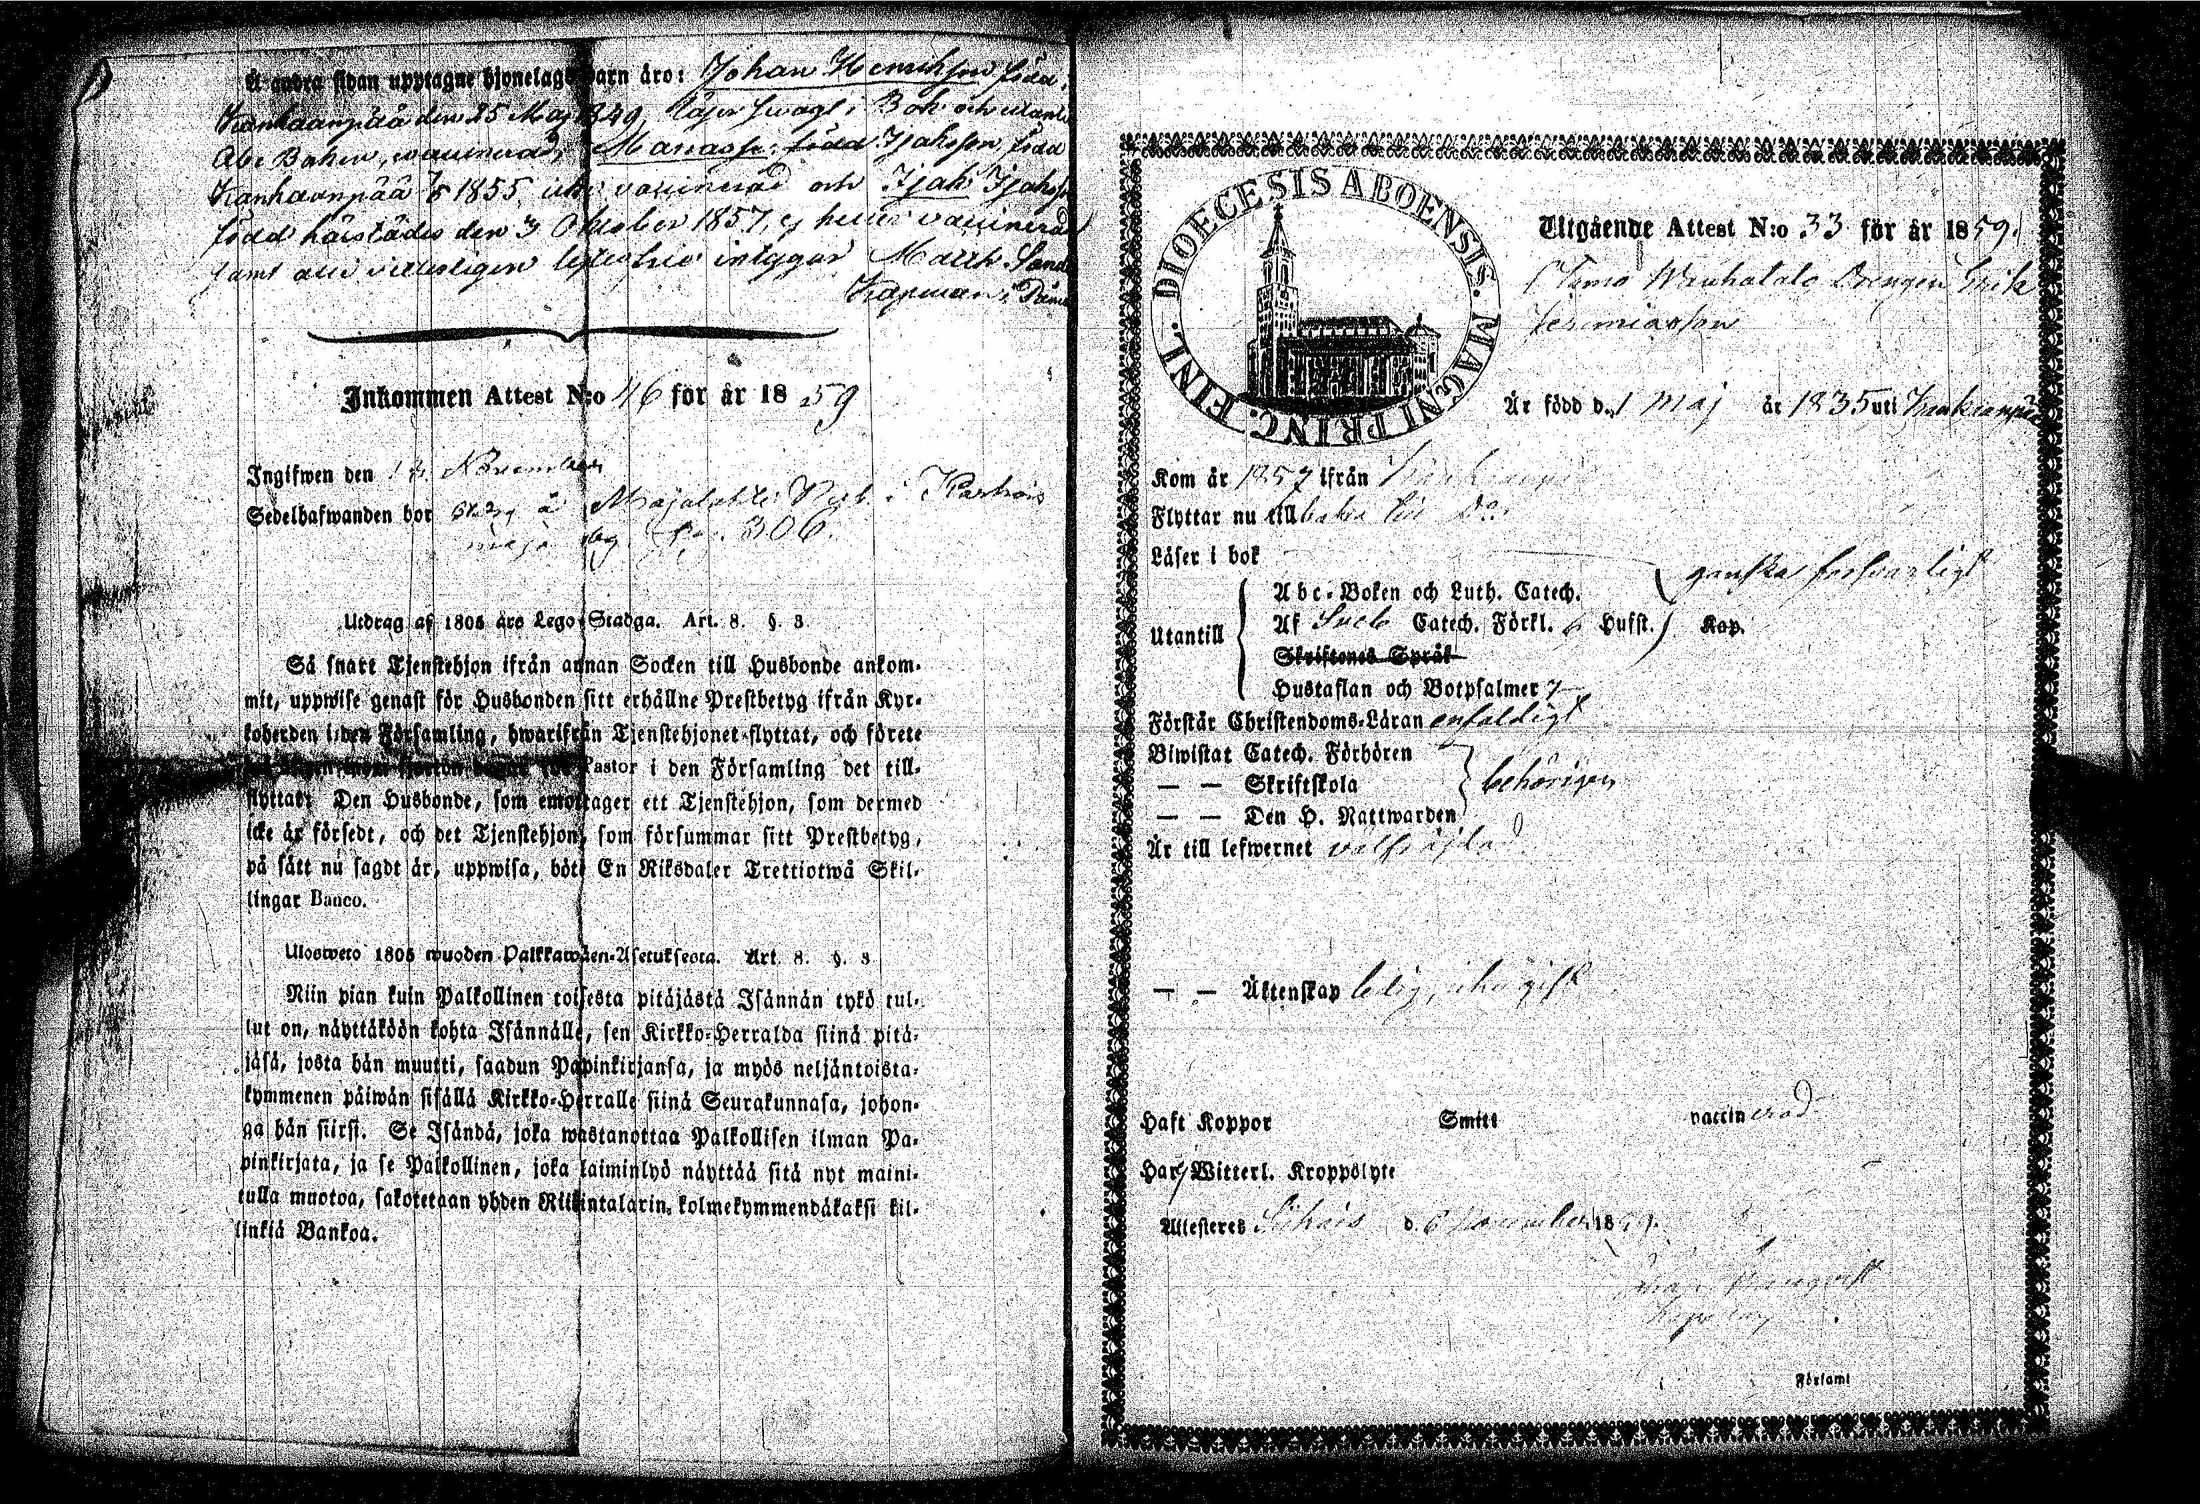 Å andra sidan upptagne hjonelags barn äro: Johan Henriksson född i
Kankaanpää den 25 Maj 1849, läser svagt i Bok och utantill
Abc Boken, vaccinerad, Manasse född Isaksson född
Kankaanpää 1855, icke vaccinerad och Isak Isaksson
född härstädes den 3 Oktober 1857, ej heller vaccinerad
samt att intygar Matth. Sand
Inkommen Attest N:o 46 för år 1859
Ingifwen den 13 November
Sedelhafwanden bor
pag. 306.
Utdrag af 1805 års Lego-Stadga. Art. 8. §. 3
Så snart Tjenstehjon ifrån annan Socken till Husbonde ankom-
mit, uppwise genast för Husbonden sitt erhållne Prestbetyg ifrån Kyr-
koherden i den Församling, hwarifrån Tjenstehjonet flyttat, och förete
Pastor i den Församling det till-
flyttat; Den Husbonde, som emottager ett Tjenstehjon, som dermed
icke är försedt, och det Tjenstehjon, som försummar sitt Prestbetyg,
på sätt nu sagdt är, uppwisa, böte En Riksdaler Trettiotwå Skil-
lingar Banco.
Ulosweto 1805 wuoden Palkkawäen-Asetuksesta. Art. 8. §. 3
Niin pian kuin Palkollinen toisesta pitäjästä Isännän tykö tul-
lut on, näyttäköön kohta Isännälle, sen Kirkko-Herralda siinä pitä-
jäsä, josta hän muutti, saadun Papinkirjansa, ja myös neljäntoista-
kymmenen päiwän sisällä Kirkko-Herralle siinä Seurakunnasa, johon-
ga hän siirsi. Se Isändä, joka wastanottaa Palkollisen ilman Pa-
pinkirjata, ja se Palkollinen, joka laiminlyö näyttää sitä nyt maini-
tulla muotoa, sakotetaan yhden Riikintalarin, kolmekymmendäkaksi kil-
linkiä Bankoa.
DIOECESIS ABOENSIS. MAGNI PRINC. FINL.
Utgående Attest N:o 33 för år 1859.
Drengen Erik
Jeremiasson
Är född d. 1 Maj år 1835 uti Kankaanpää
Kom år 1857 ifrån Kankaanpää
Flyttar nu till baka till Do.
Läser i bok
ganska försvarligt
Utantill
Abc-Boken och Luth. Catech.
Af Sveb Catech. Förkl. o Husst. Kap.
Skriftenes Språk
Hustaflan och Botpsalmer 7
Förstår Christendoms-Läran enfaldigt
Biwistat Catech. Förhören
— — Skriftskola
behörigen
— — Den H. Nattwarden
Är till lefwernet välfrejdad
— — Äktenskap ledig, icke gift
Haft Koppor Smitt vaccinerad
Har ej Witterl. Kroppslyte
Attesteres d. 6 November 1859.
Församl